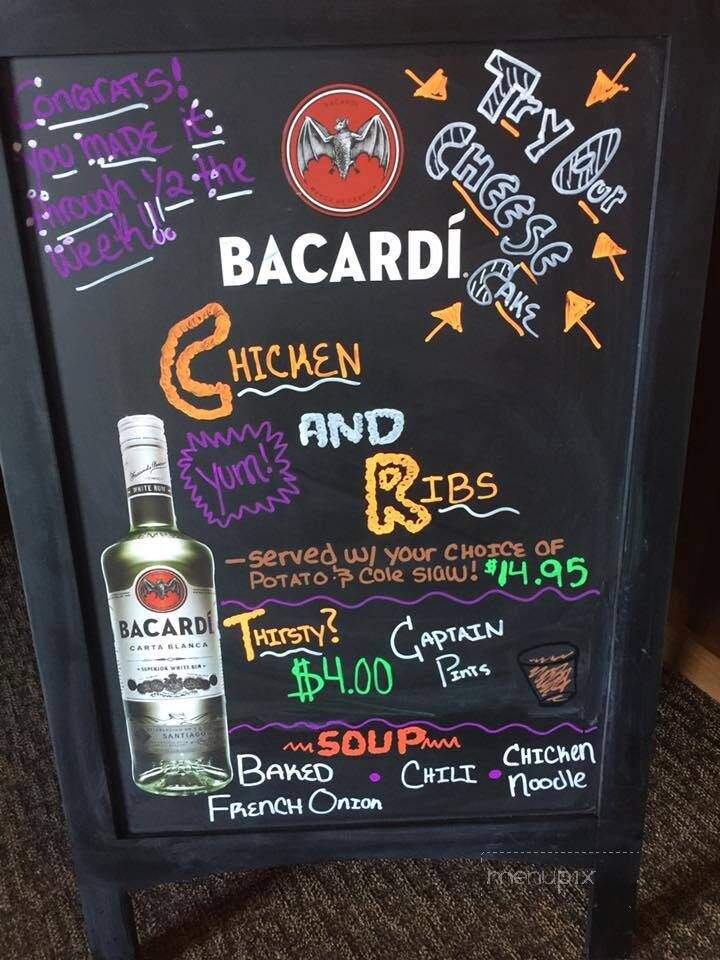 Congrats!
You made it
through 1/2 the
week!!
BACARDÍ
Try Our
CHEESE
CAKE
CHICKEN
AND
RIBS
Yum!
WHITE RUM
BACARDÍ
CARTA BLANCA
SUPERIOR WHITE RUM
SANTIAGO
- served w/ your CHOICE OF
POTATO & Cole slaw! $14.95
THIRSTY?
$4.00
CAPTAIN
Pints
SOUP
BAKED
FRENCH Onion
• CHILI •
CHICKEN
Noodle
menupix